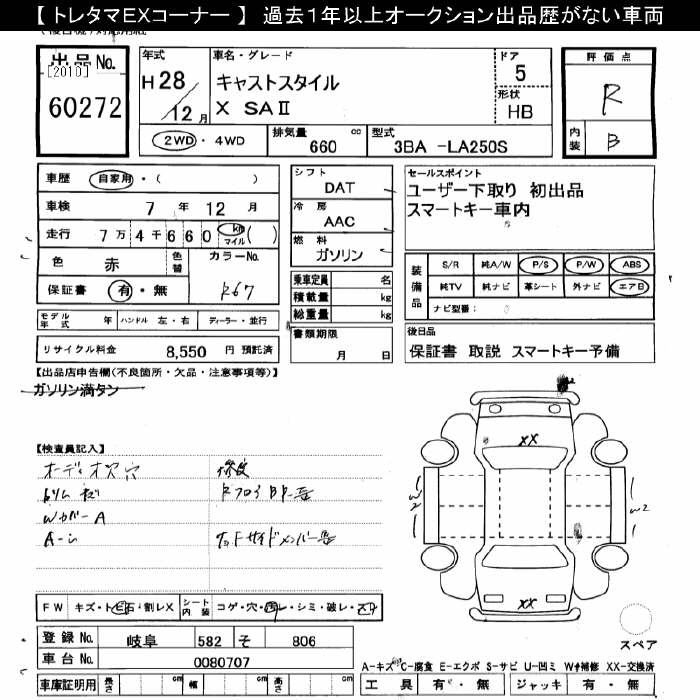 【 トレタマＥＸコーナー 】 過去１年以上オークション出品歴がない車両
出品 No.
[2010]
60272
年式
H 28
12 月
車名・グレード
キャストスタイル
X SAⅡ
ドア
5
形状
HB
評価点
R
内装
B
2WD・4WD
排気量
660 cc
型式
3BA -LA250S
車歴 自家用・( )
車検 7 年 12 月
走行 7万4千660 km マイル ( )
色 赤 色替
カラーNo.
R67
保証書 有・無
シフト
DAT
冷房
AAC
燃料
ガソリン
乗車定員 名
積載量 kg
総重量 kg
セールスポイント
ユーザー下取り 初出品
スマートキー車内
装備品
S/R 純A/W P/S P/W ABS
純TV 純ナビ 革シート 外ナビ エアB
ナビ型番：
モデル年式 年 ハンドル 左・右 ディーラー・並行
リサイクル料金 8,550 円 預託済
書類期限
月 日
後日品
保証書 取説 スマートキー予備
【出品店申告欄(不良箇所・欠品・注意事項等)】
ガソリン満タン
【検査員記入】
Wカバー A
XX
W2
W2
XX
FW キズ・トビ石・割レX
シート内装 コゲ・穴・汚レ・シミ・破レ・スレ
登録 No. 岐阜 582 そ 806
車台 No. 0080707
スペア
A－キズ C－腐食 E－エクボ S－サビ U－凹ミ W－補修 XX－交換済
車庫証明用 長さ cm 幅 cm 高さ cm
工具 有・無 ジャッキ 有・無